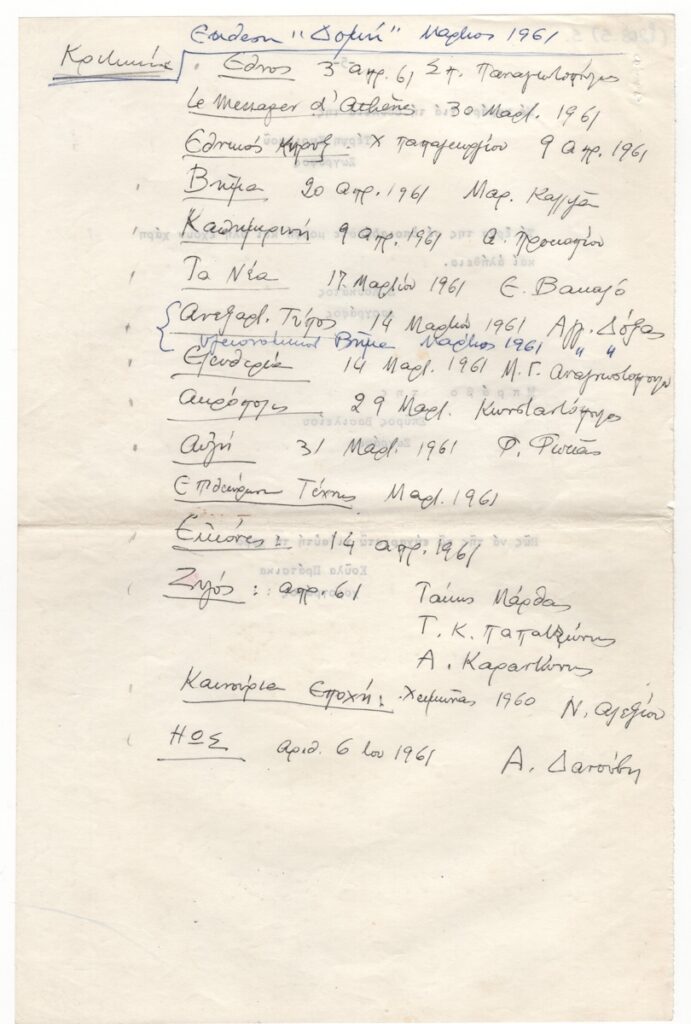 Έκθεση "Δομή" Μάρτιος 1961
Κριτικαί
Έθνος 3 απρ. 61 Σπ. Παναγιωτόπουλος
Le Messager d'Athènes 30 Μαρτ. 1961
Εθνικός Κήρυξ Χ Παπαγεωργίου 9 απρ. 1961
Βήμα 20 απρ. 1961 Μαρ. Καλλιγά
Καθημερινή 9 απρ. 1961 Α. Προκοπίου
Τα Νέα 17 Μαρτίου 1961 Ε. Βακαλό
Ανεξαρτ. Τύπος 14 Μαρτίου 1961 Αγλ. Δόξας
Υγειονομικόν Βήμα Μάρτιος 1961 " "
Ελευθερία 14 Μαρτ. 1961 Μ. Γ. Αναγνωστοπούλου
Ακρόπολις 29 Μαρτ. Κωνσταντόπουλος
Αυγή 31 Μαρτ. 1961 Φ. Φωτιάς
Επιθεώρηση Τέχνης Μαρτ. 1961
Εικόνες: 14 απρ. 1961
Ζυγός: απρ. 61 Τάκης Μάρθας
Τ. Κ. Παπατζώνης
Α. Καραντώνης
Καινούρια Εποχή: Χειμώνας 1960 Ν. Αλεξίου
ΗΩΣ αριθ. 6 του 1961 Α. Δανούβη